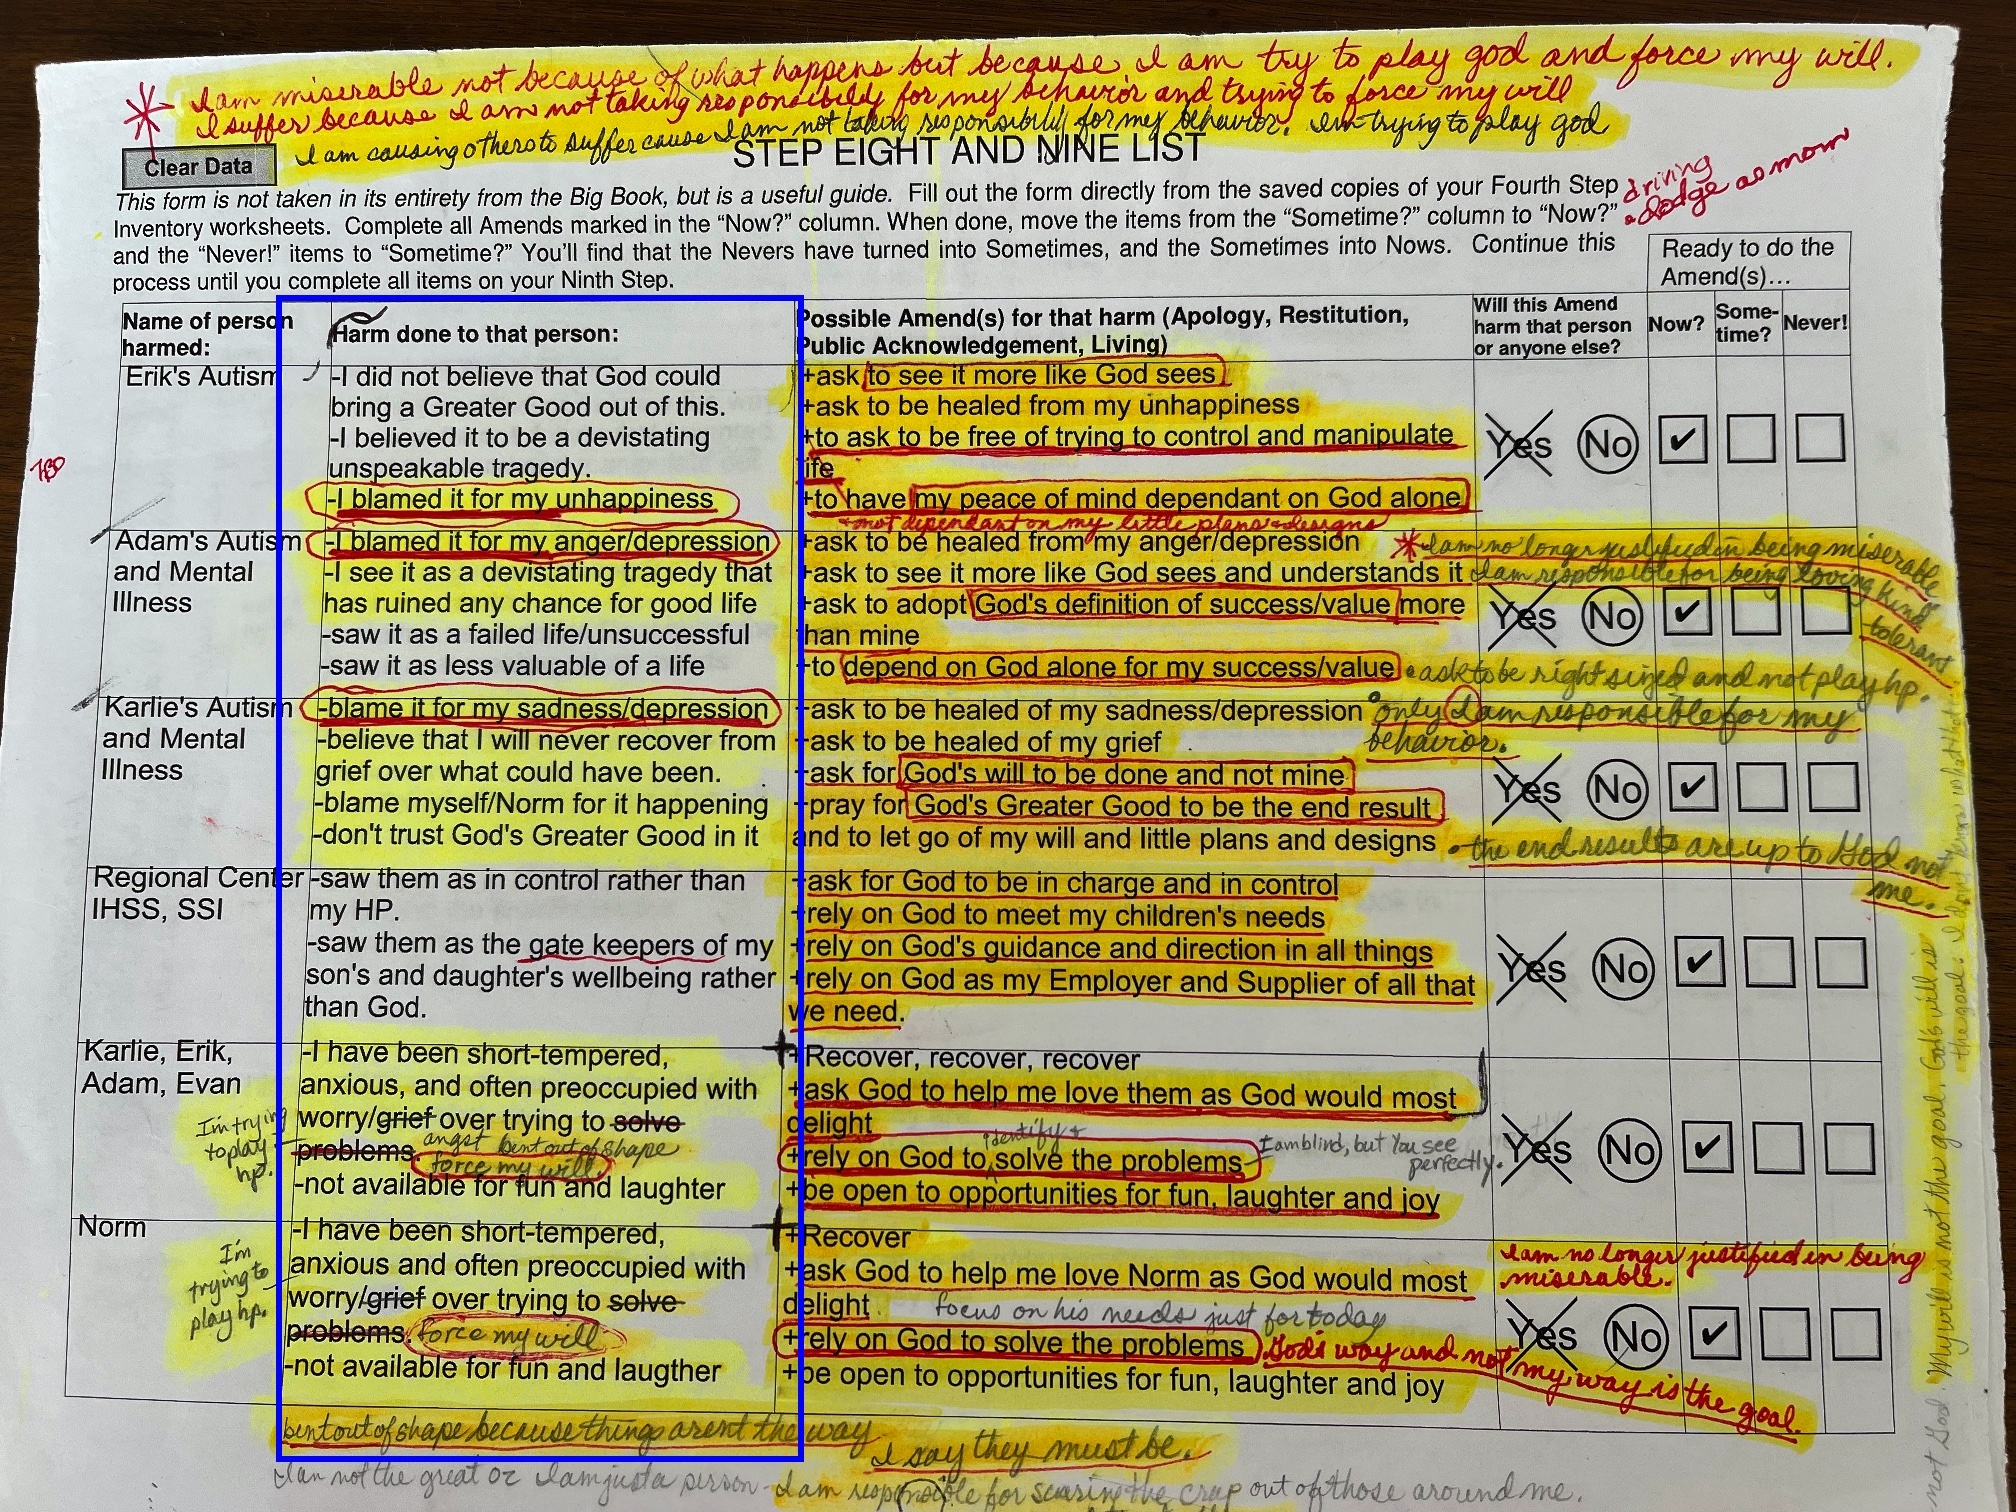 * I am miserable not because of what happens but because I am try to play god and force my will.
I suffer because I am not taking responsibility for my behavior and trying to force my will
I am causing others to suffer cause I am not taking responsibility for my behavior. Im trying to play god
Clear Data
STEP EIGHT AND NINE LIST
This form is not taken in its entirety from the Big Book, but is a useful guide. Fill out the form directly from the saved copies of your Fourth Step
Inventory worksheets. Complete all Amends marked in the “Now?” column. When done, move the items from the “Sometime?” column to “Now?”
and the “Never!” items to “Sometime?” You’ll find that the Nevers have turned into Sometimes, and the Sometimes into Nows. Continue this
process until you complete all items on your Ninth Step.
driving
dodge as mom
Ready to do the
Amend(s)…
Name of person
harmed:
Harm done to that person:
Possible Amend(s) for that harm (Apology, Restitution,
Public Acknowledgement, Living)
Will this Amend
harm that person
or anyone else?
Now?
Some-
time?
Never!
Erik's Autism
-I did not believe that God could
bring a Greater Good out of this.
-I believed it to be a devistating
unspeakable tragedy.
-I blamed it for my unhappiness
+ask to see it more like God sees
+ask to be healed from my unhappiness
+to ask to be free of trying to control and manipulate
life
+to have my peace of mind dependant on God alone
+ not dependant on my little plans + designs
Yes No ✔
Adam's Autism
and Mental
Illness
-I blamed it for my anger/depression
-I see it as a devistating tragedy that
has ruined any chance for good life
-saw it as a failed life/unsuccessful
-saw it as less valuable of a life
+ask to be healed from my anger/depression
+ask to see it more like God sees and understands it
+ask to adopt God's definition of success/value more
than mine
+to depend on God alone for my success/value
• ask to be right sized and not play hp.
* I am no longer justified in being miserable
I am responsible for being loving kind
-tolerant
Yes No ✔
Karlie's Autism
and Mental
Illness
-blame it for my sadness/depression
-believe that I will never recover from
grief over what could have been.
-blame myself/Norm for it happening
-don't trust God's Greater Good in it
+ask to be healed of my sadness/depression
+ask to be healed of my grief
+ask for God's will to be done and not mine
+pray for God's Greater Good to be the end result
and to let go of my will and little plans and designs
• only I am responsible for my
behavior.
Yes No ✔
• the end results are up to God not
me.
Regional Center
IHSS, SSI
-saw them as in control rather than
my HP.
-saw them as the gate keepers of my
son's and daughter's wellbeing rather
than God.
+ask for God to be in charge and in control
+rely on God to meet my children's needs
+rely on God's guidance and direction in all things
+rely on God as my Employer and Supplier of all that
we need.
Yes No ✔
Karlie, Erik,
Adam, Evan
I'm trying
to play
hp.
-I have been short-tempered,
anxious, and often preoccupied with
worry/grief over trying to solve
problems. angst bent out of shape
force my will
-not available for fun and laughter
+Recover, recover, recover
+ask God to help me love them as God would most
delight
identify +
+rely on God to solve the problems
I am blind, but You see
perfectly.
+be open to opportunities for fun, laughter and joy
Yes No ✔
Norm
I'm
trying to
play hp.
-I have been short-tempered,
anxious and often preoccupied with
worry/grief over trying to solve
problems. force my will
-not available for fun and laugther
+Recover
+ask God to help me love Norm as God would most
delight focus on his needs just for today
+rely on God to solve the problems
God's way and not
my way is the goal.
+be open to opportunities for fun, laughter and joy
I am no longer justified in being
miserable.
Yes No ✔
bent out of shape because things arent the way
I say they must be.
I am not the great oz I am just a person - I am responsible for scaring the crap out of those around me.
not God. My will is not the goal. God's will is
the goal.